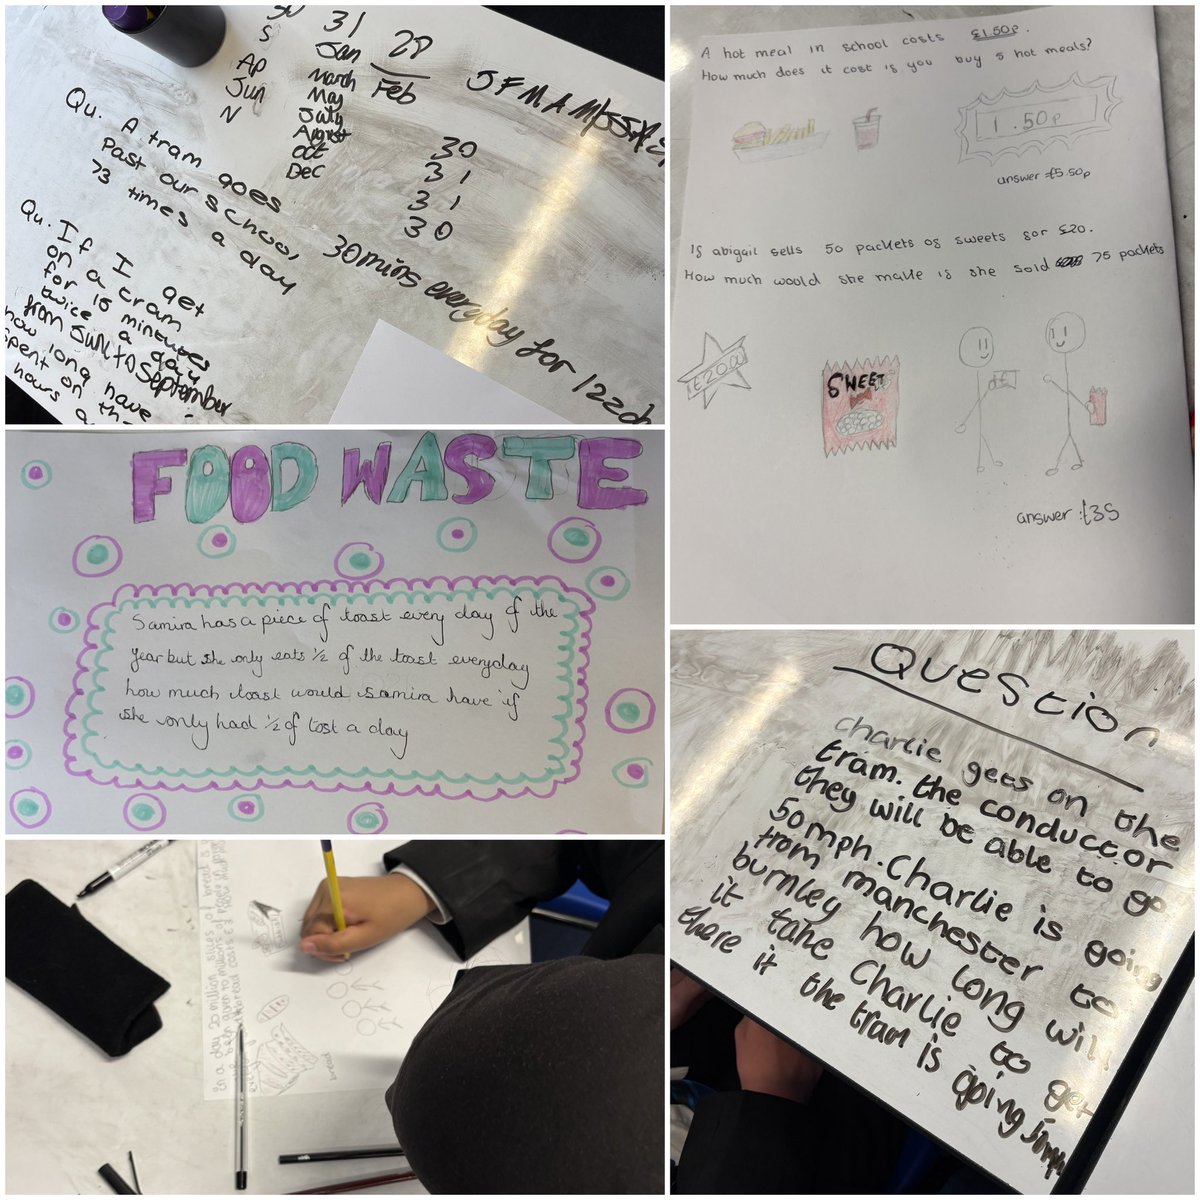 31
28
S
Jan
Feb
J F M A M
Ap
March
Jun
May
N
July
August
Oct
Dec
30
31
31
30
Qu. A tram goes
past our school
73 times a day
30mins everyday for 122d
Qu. If I get
on a tram
for 15 mintutes
twice a day
from June to September
how long have
spent on th
hours a
A hot meal in school costs £1.50p.
How much does it cost if you buy 5 hot meals?
1.50p
answer :£5.50p
If abigail sells 50 packets of sweets for £20.
How much would she make if she sold 75 packets
£20.00
SWEET
answer :£35
FOOD WASTE
Samira has a piece of toast every day of the
year but she only eats 1/2 of the toast everyday
how much toast would samira have if
she only had 1/2 of tost a day
in a day 20 million slices of bread is
been given to millions of people
bread costs £2
bread
Question
Charlie gets on the
tram. the conductor
they will be able to go
50mph. Charlie is going
from manchester to
burnley how long will
it take Charlie to get
there if the tram is going